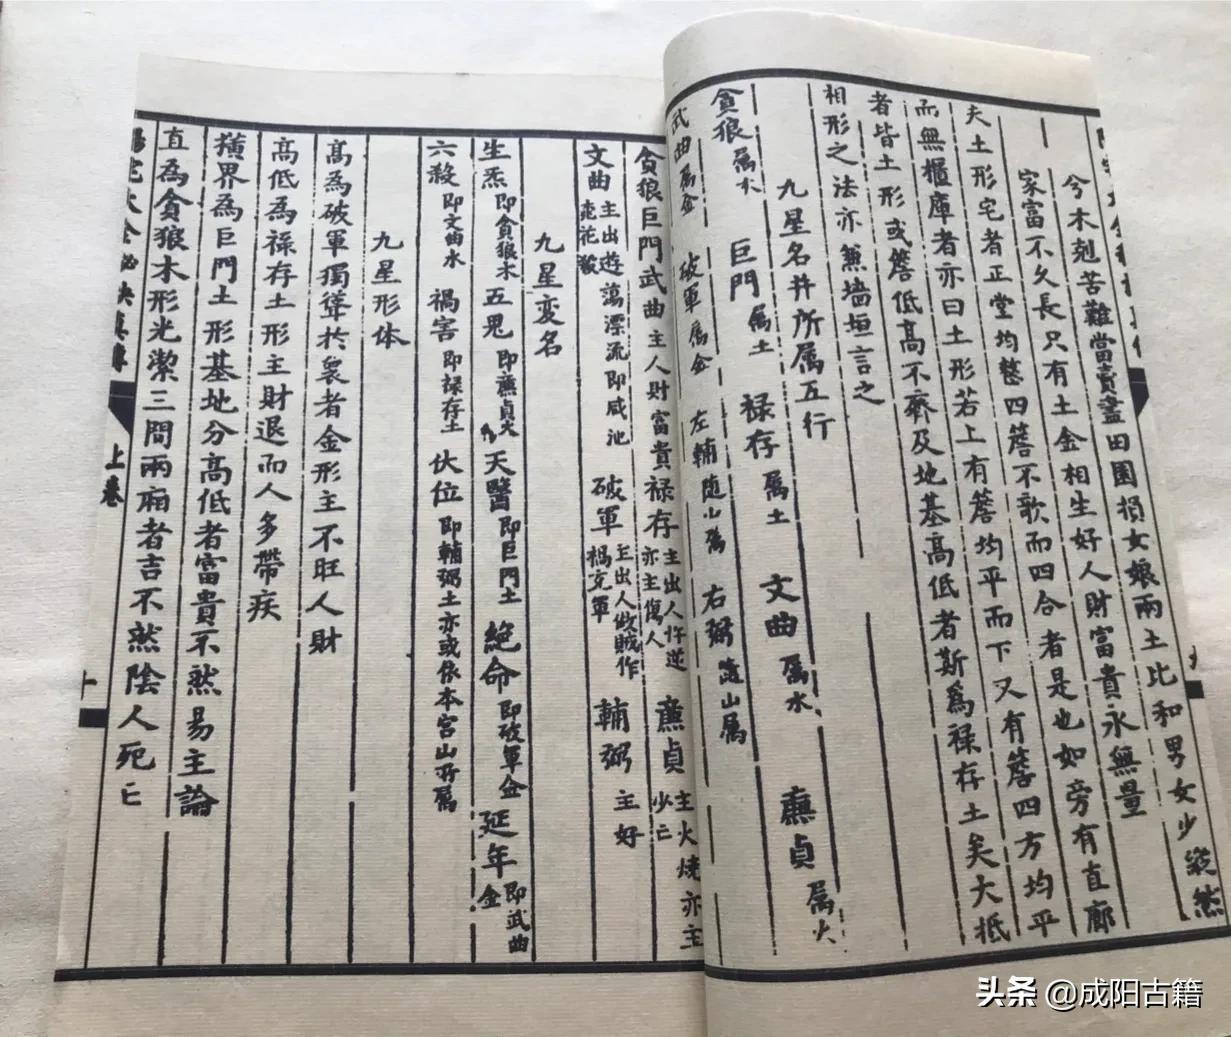 兮木剋苦難當賣盡田園損女娘兩土比和男女少縱然
家富不久長只有土金相生好人財富貴永無量
夫土形宅者正堂均整四簷不歌而四合者是也如旁有直廊
而無櫃庫者亦曰土形若上有簷均平而下又有簷四方均平
者皆土形或簷低高不齊及地基高低者斯爲禄存土矣大抵
相形之法亦兼墙垣言之
九星名并所属五行
貪狼属木 巨門属土 禄存属土 文曲属水 亷貞属火
武曲属金 破軍属金 左輔隨山属 右弼隨山属
貪狼巨門武曲主人財富貴禄存主出人忤逆亦主傷人 亷貞主火燒亦主少亡
文曲主出遊蕩漂流即咸池桃花煞 破軍主出人做賊作禍充軍 輔弼主好
九星变名
生炁即貪狼木 五鬼即亷貞火 天醫即巨門土 絶命即破軍金 延年即武曲金
六殺即文曲水 禍害即禄存土 伏位即輔弼土亦或依本宮山所属
九星形体
高為破軍獨聳於衆者金形主不旺人財
高低為禄存土形主財退而人多帶疾
橫界為巨門土形基地分高低者富貴不然易主論
直為貪狼木形光潔三間兩廂者吉不然陰人死亡
上卷
十
头条 @成阳古籍